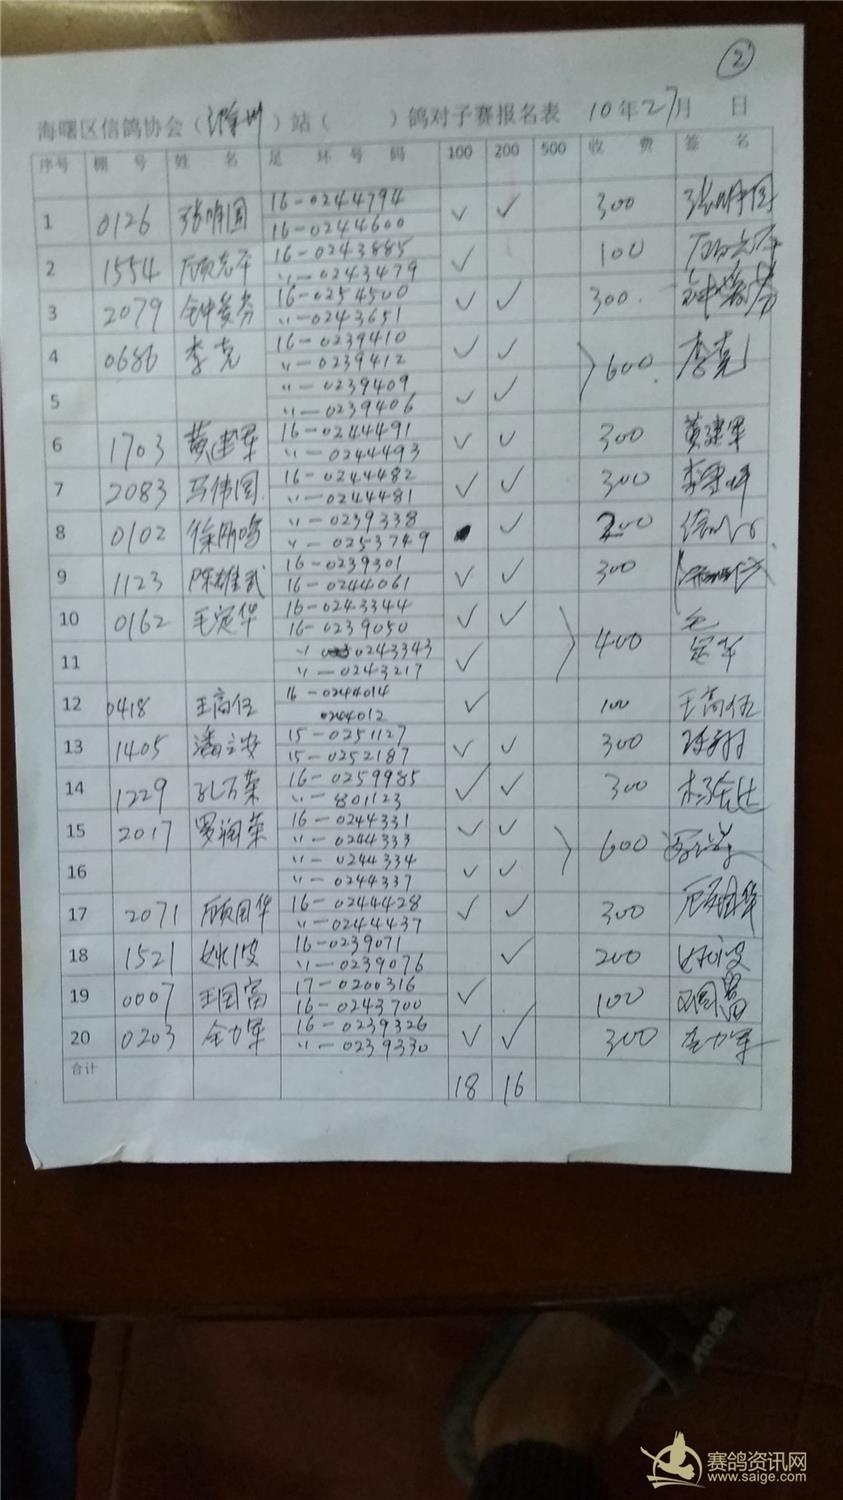 2
海曙区信鸽协会(滁州)站( )鸽对子赛报名表 10年27月 日
序号 棚 号 姓 名 足 环 号 码 100 200 500 收 费 签 名
1 0126 张明国 16-0244794 ✓ ✓ 300 张明国
16-0244600
2 1554 顾志平 16-0243885 ✓ 100
〃-0243479
3 2079 钟爱芬 16-0254500 ✓ ✓ 300
〃-0243651
4 0686 李克 16-0239410 ✓ ✓ 600 李克
〃-0239412
5 〃-0239409 ✓ ✓
〃-0239406
6 1703 黄建军 16-0244491 ✓ ✓ 300 黄建军
〃-0244493
7 2083 马伟国 16-0244482 ✓ ✓ 300
〃-0244481
8 0102 〃-0239338 ✓ 200
〃-0253749
9 1123 陈雄武 16-0239301 ✓ ✓ 300
16-0244061
10 0162 毛定华 16-0243344 ✓ ✓ 400 毛定华
16-0239050
11 〃 0243343 ✓
〃-0243217
12 0418 王高伍 16-0244014 ✓ 100 王高伍
0244012
13 1405 潘立安 15-0251127 ✓ ✓ 300
15-0252187
14 1229 孔万荣 16-0259985 ✓ ✓ 300
〃-801123
15 2017 罗润荣 16-0244331 ✓ ✓ 600
〃-0244333
16 〃-0244334 ✓ ✓
〃-0244337
17 2071 顾国华 16-0244428 ✓ ✓ 300 顾国华
〃-0244437
18 1521 16-0239071 ✓ 200
〃-0239076
19 0007 王国富 17-0200316 ✓ 100 王国富
16-0243700
20 0203 全力军 16-0239326 ✓ ✓ 300 全力军
〃-0239330
合计 18 16
赛鸽资讯网
www.saige.com